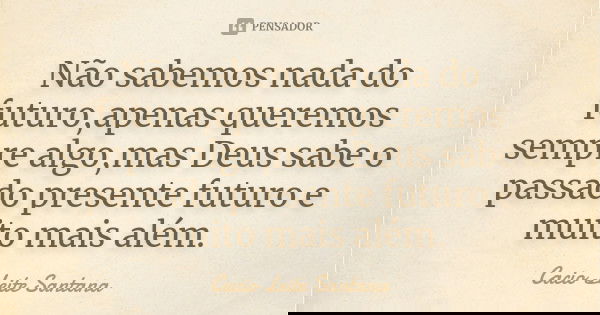 PENSADOR
Não sabemos nada do
futuro,apenas queremos
sempre algo,mas Deus sabe o
passado presente futuro e
muito mais além.
Cacio Leite Santana